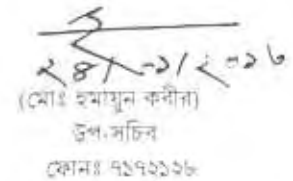 ২৪/-১/২০১৬
(মোঃ হুমায়ুন কবীর)
উপ-সচিব
ফোনঃ ৭১৭২১২৬